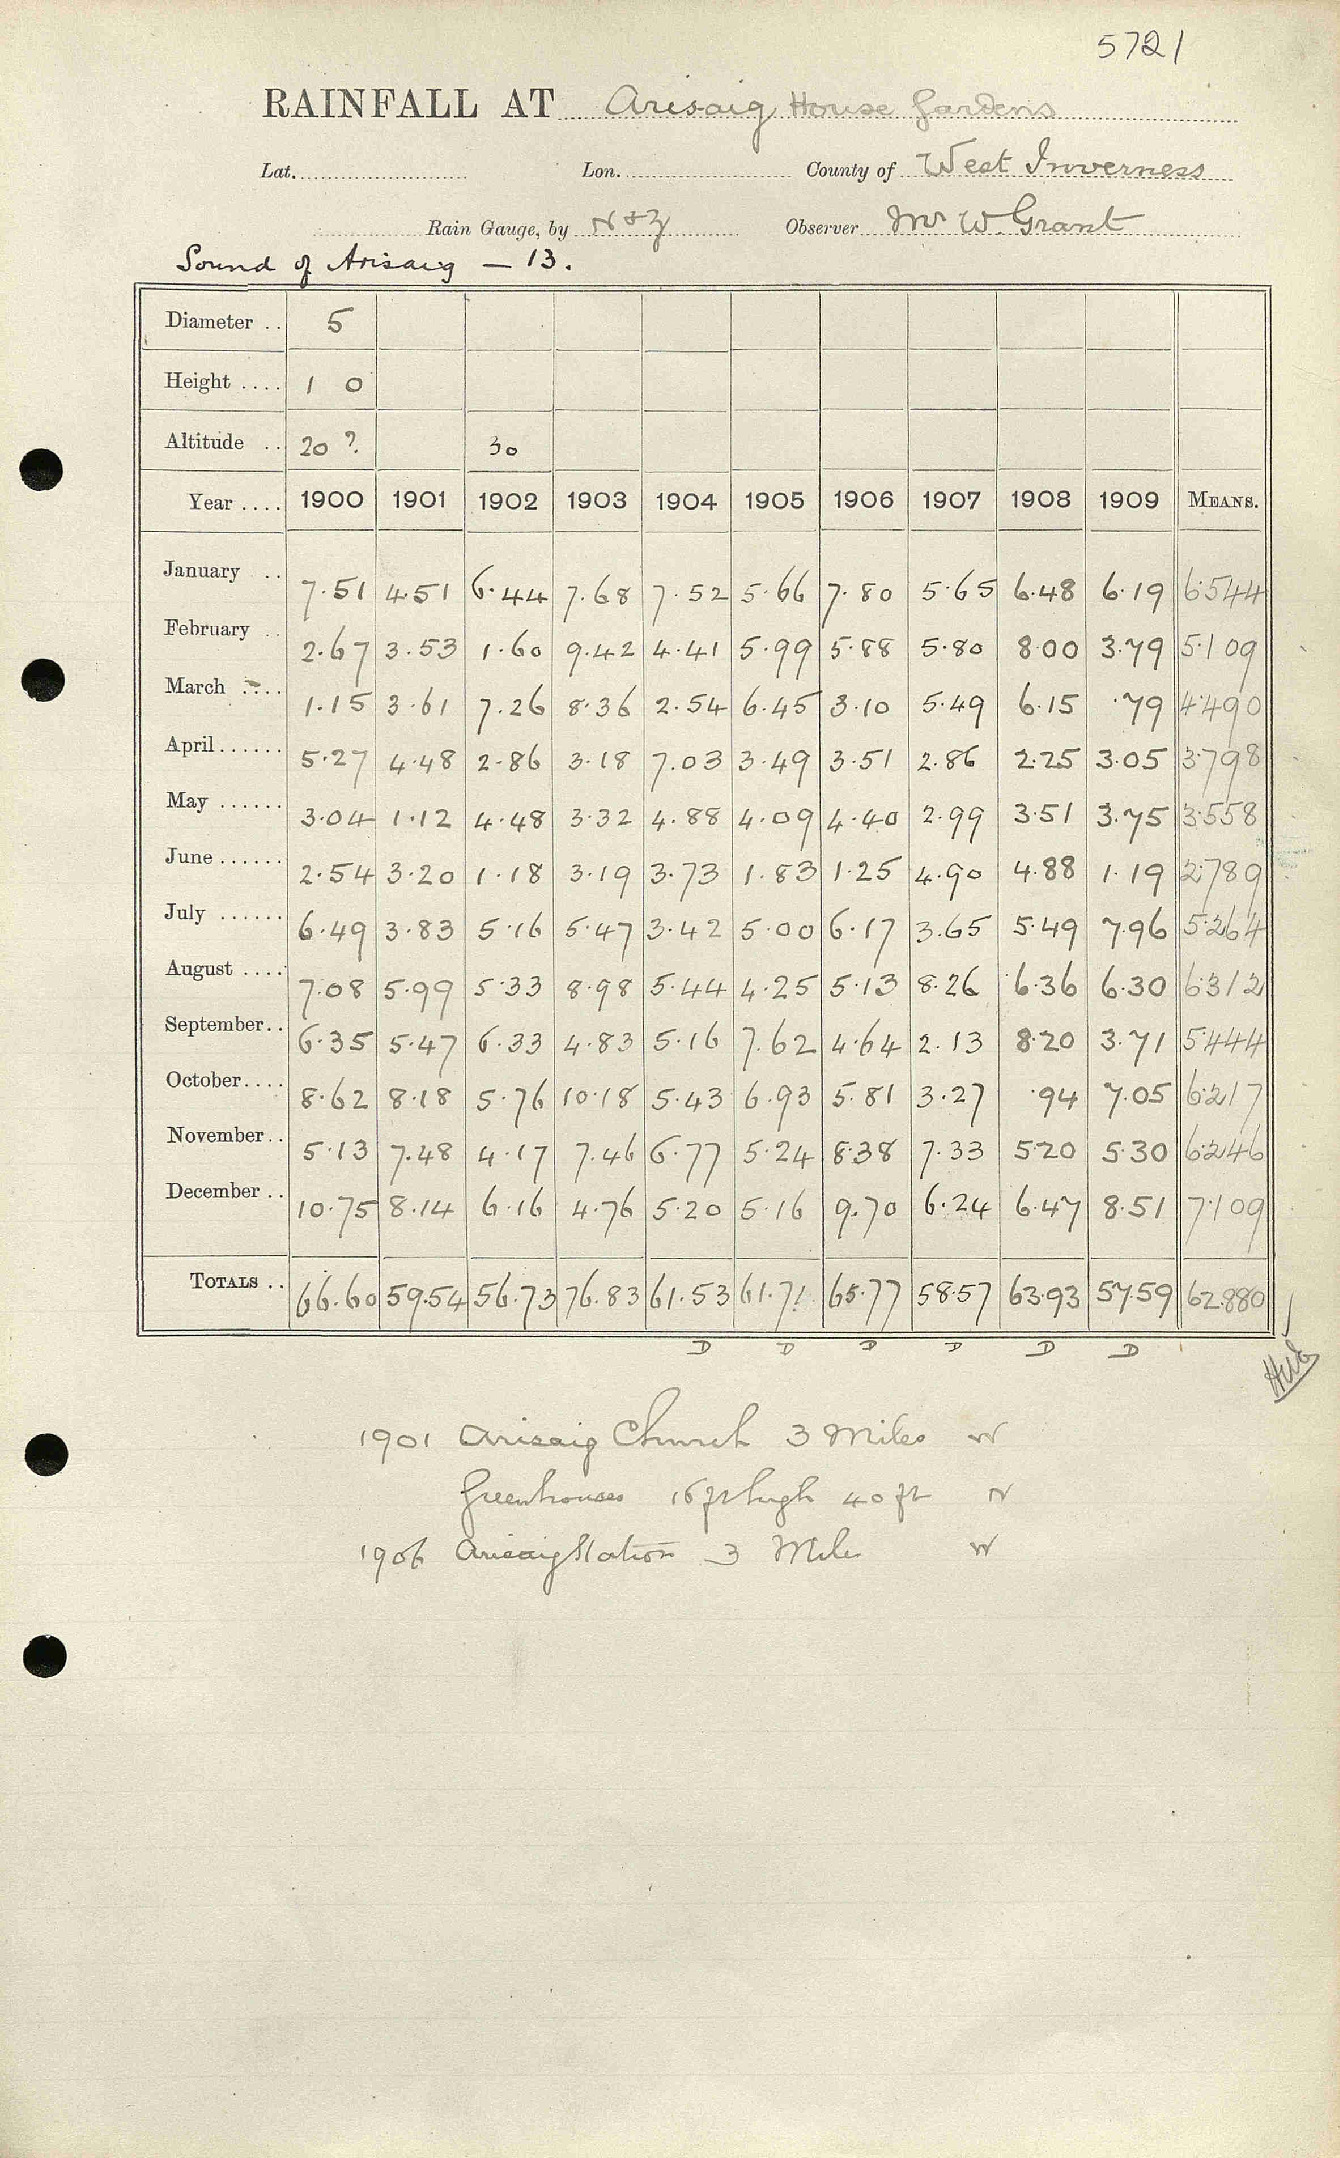 5721
RAINFALL AT Arisaig House Gardens
Lat. Lon. County of West Inverness
Rain Gauge, by N & Z Observer Mr W. Grant
Sound of Arisaig — 13.
Diameter .. 5
Height .... 1 0
Altitude .. 20 ? 30
Year .... 1900 1901 1902 1903 1904 1905 1906 1907 1908 1909 MEANS.
January .. 7.51 4.51 6.44 7.68 7.52 5.66 7.80 5.65 6.48 6.19 6.544
February .. 2.67 3.53 1.60 9.42 4.41 5.99 5.88 5.80 8.00 3.79 5.109
March .... 1.15 3.61 7.26 8.36 2.54 6.45 3.10 5.49 6.15 .79 4.490
April ...... 5.27 4.48 2.86 3.18 7.03 3.49 3.51 2.86 2.25 3.05 3.798
May ...... 3.04 1.12 4.48 3.32 4.88 4.09 4.40 2.99 3.51 3.75 3.558
June ...... 2.54 3.20 1.18 3.19 3.73 1.83 1.25 4.90 4.88 1.19 2.789
July ...... 6.49 3.83 5.16 5.47 3.42 5.00 6.17 3.65 5.49 7.96 5.264
August .... 7.08 5.99 5.33 8.98 5.44 4.25 5.13 8.26 6.36 6.30 6.312
September.. 6.35 5.47 6.33 4.83 5.16 7.62 4.64 2.13 8.20 3.71 5.444
October.... 8.62 8.18 5.76 10.18 5.43 6.93 5.81 3.27 .94 7.05 6.217
November.. 5.13 7.48 4.17 7.46 6.77 5.24 8.38 7.33 5.20 5.30 6.246
December .. 10.75 8.14 6.16 4.76 5.20 5.16 9.70 6.24 6.47 8.51 7.109
TOTALS .. 66.60 59.54 56.73 76.83 61.53 61.71 65.77 58.57 63.93 57.59 62.880
D D D D D D
1901 Arisaig Church 3 Miles W
Greenhouses 16 ft high 40 ft N
1906 Arisaig Station 3 Miles W